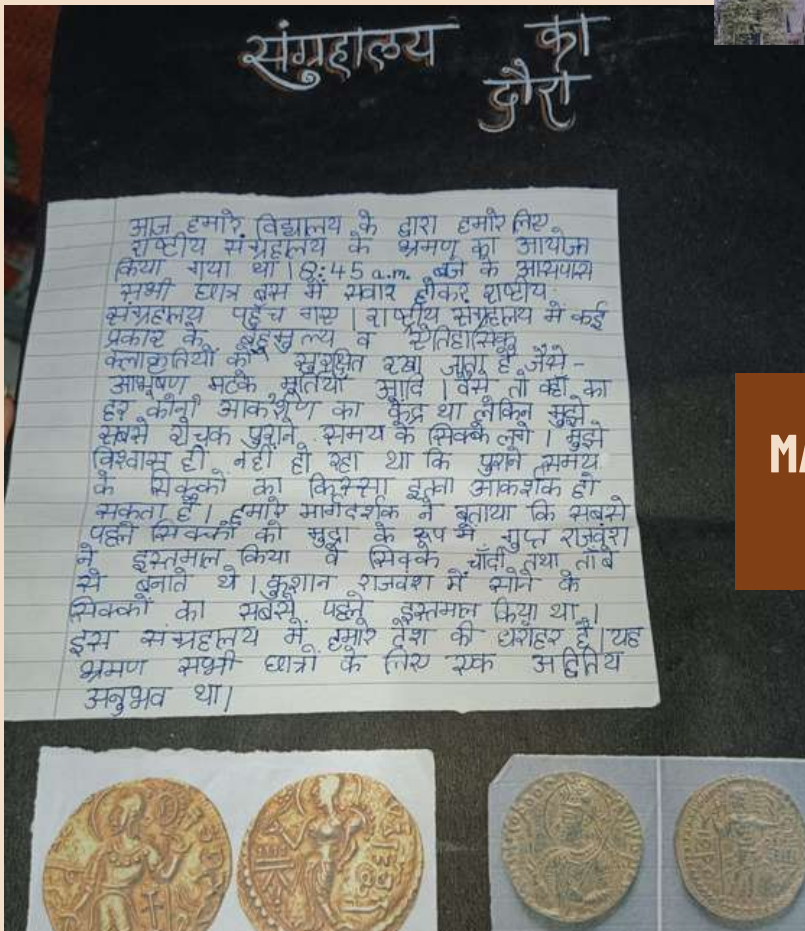 संग्रहालय का
दौरा
आज हमारे विद्यालय के द्वारा हमारे लिए
राष्टीय संग्रहालय के भ्रमण का आयोजन
किया गया था। 8:45 a.m. बजे के आसपास
सभी छात्र बस में सवार होकर राष्टीय
संग्रहालय पहुँच गए। राष्ट्रीय संग्रहालय में कई
प्रकार के बहुमुल्य व ऐतिहासिक
क्लाकृतियों को सुरक्षित रखा जाता है जैसे -
आभूषण मटके मूर्तियाँ आदि। वैसे तो वहाँ का
हर कोना आकर्शण का केंद्र था लेकिन मुझे
सबसे रोचक पुराने समय के सिक्के लगे। मुझे
विश्वास ही नहीं हो रहा था कि पुराने समय
के सिक्को का किस्सा इतना आकर्शक हो
सकता है। हमारे मार्गदर्शक ने बताया कि सबसे
पहले सिक्कों को मुद्रा के रूप में गुप्त राजवंश
ने इस्तमाल किया वे सिक्के चाँदी तथा ताँबे
से बनाते थे। कुशान राजवंश में सोने के
सिक्कों का सबसे पहले इस्तमाल किया था।
इस संग्रहालय में हमारे देश की धरोहर है। यह
भ्रमण सभी छात्रों के लिए एक अद्वितिय
अनुभव था।
MA